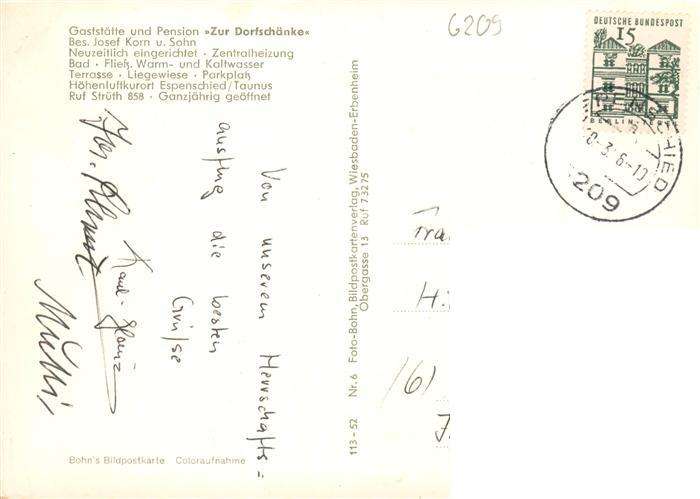 Gaststätte und Pension »Zur Dorfschänke«
Bes. Josef Korn u. Sohn
Neuzeitlich eingerichtet · Zentralheizung
Bad · Fließ. Warm- und Kaltwasser
Terrasse · Liegewiese · Parkplatz
Höhenluftkurort Espenschied/Taunus
Ruf Strüth 858 · Ganzjährig geöffnet
6209
DEUTSCHE BUNDESPOST
15
BERLIN-TEGEL
209
Von unserem Herrschafts=
ausflug die besten
Grüße
Karl-Heinz
Mutti
113-52 Nr. 6 Foto-Bohn, Bildpostkartenverlag, Wiesbaden-Erbenheim
Obergasse 13 Ruf 73275
Fra
H
(6)
Bohn's Bildpostkarte Coloraufnahme